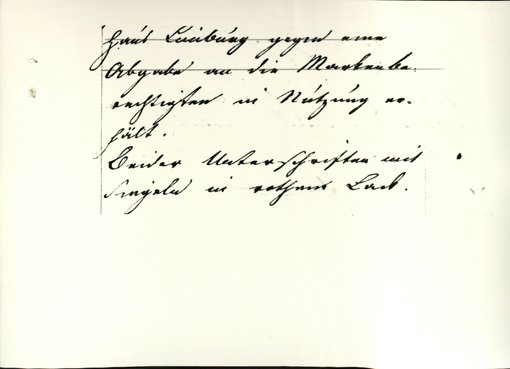 Haus Lauburg gegen eine
Abgabe an die Markenbe-
rechtigten in Nutzung er-
hält.
Beider Unterschriften mit
Siegeln in rothem Lack.